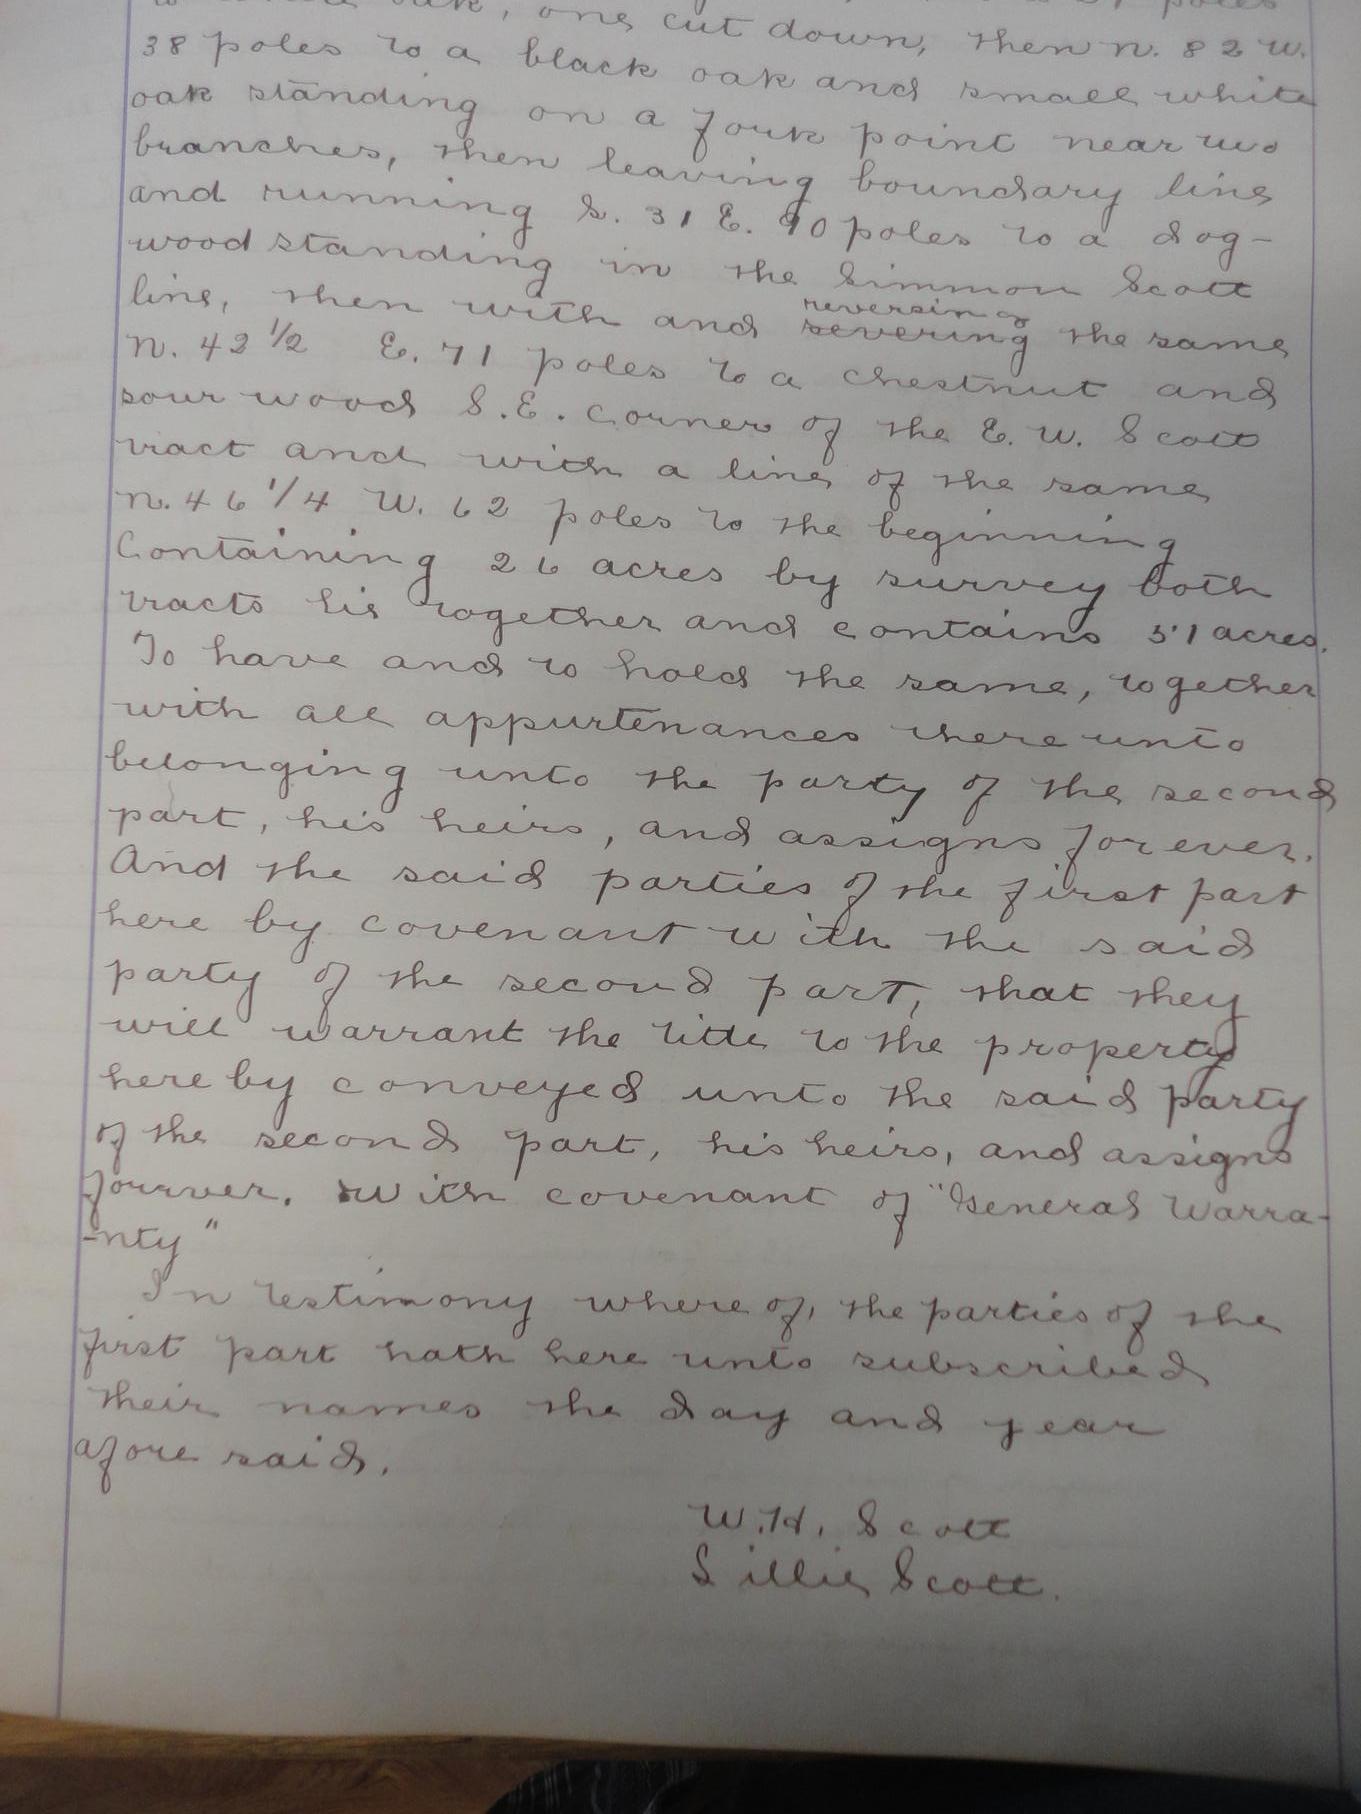 oak, one cut down, then N. 82 W.
38 poles to a black oak and small white
oak standing on a fork point near two
branches, then leaving boundary line
and running S. 31 E. 90 poles to a dog-
wood standing in the Simmon Scott
reversing
line, then with and severing the same
N. 42 1/2 E. 71 poles to a chestnut and
sourwood S.E. corner of the E. W. Scott
tract and with a line of the same
N. 46 1/4 W. 62 poles to the beginning
Containing 26 acres by survey both
tracts lie together and contains 51 acres.
To have and to hold the same, together
with all appurtenances there unto
belonging unto the party of the second
part, his heirs, and assigns forever.
And the said parties of the first part
here by covenant with the said
party of the second part, that they
will warrant the title to the property
here by conveyed unto the said party
of the second part, his heirs, and assigns
forever. With covenant of "General Warra-
-nty"
In testimony where of, the parties of the
first part hath here unto subscribed
their names the day and year
afore said.
W. H. Scott
Lillie Scott.